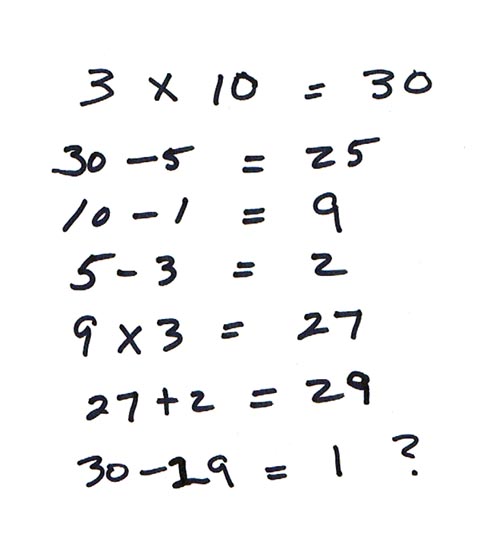 3 × 10 = 30
30 - 5 = 25
10 - 1 = 9
5 - 3 = 2
9 × 3 = 27
27 + 2 = 29
30 - 29 = 1 ?